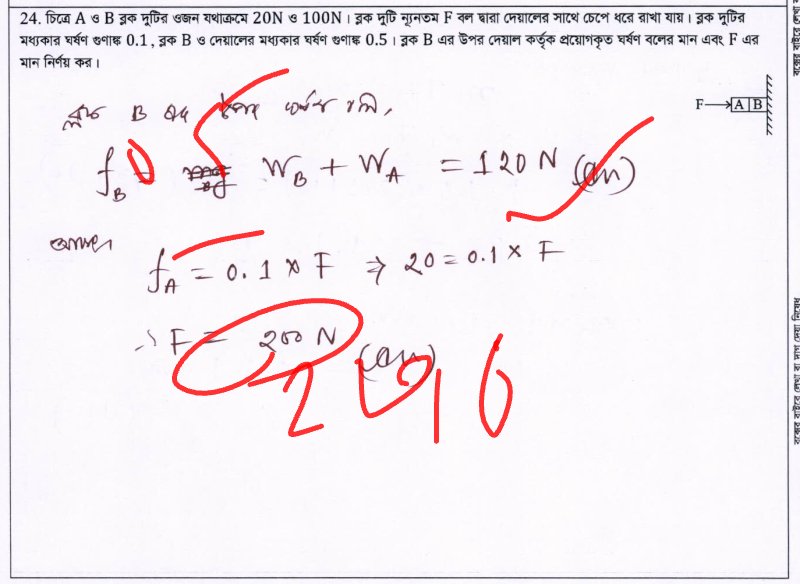 24. চিত্রে A ও B ব্লক দুটির ওজন যথাক্রমে 20N ও 100N। ব্লক দুটি ন্যূনতম F বল দ্বারা দেয়ালের সাথে চেপে ধরে রাখা যায়। ব্লক দুটির
মধ্যকার ঘর্ষণ গুণাঙ্ক 0.1, ব্লক B ও দেয়ালের মধ্যকার ঘর্ষণ গুণাঙ্ক 0.5। ব্লক B এর উপর দেয়াল কর্তৃক প্রয়োগকৃত ঘর্ষণ বলের মান এবং F এর
মান নির্ণয় কর।
F A B
ব্লক B এর উপর ঘর্ষণ বল,
f_B = W_B + W_A = 120 N (Ans)
আবার
f_A = 0.1 × F ⇒ 20 = 0.1 × F
∴ F = 200 N (Ans)